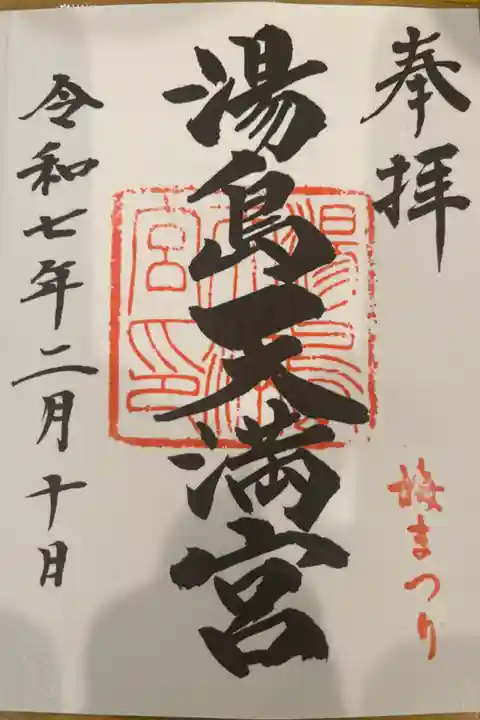 奉拝
梅まつり
湯島天満宮
湯島天満宮印
令和七年二月十日